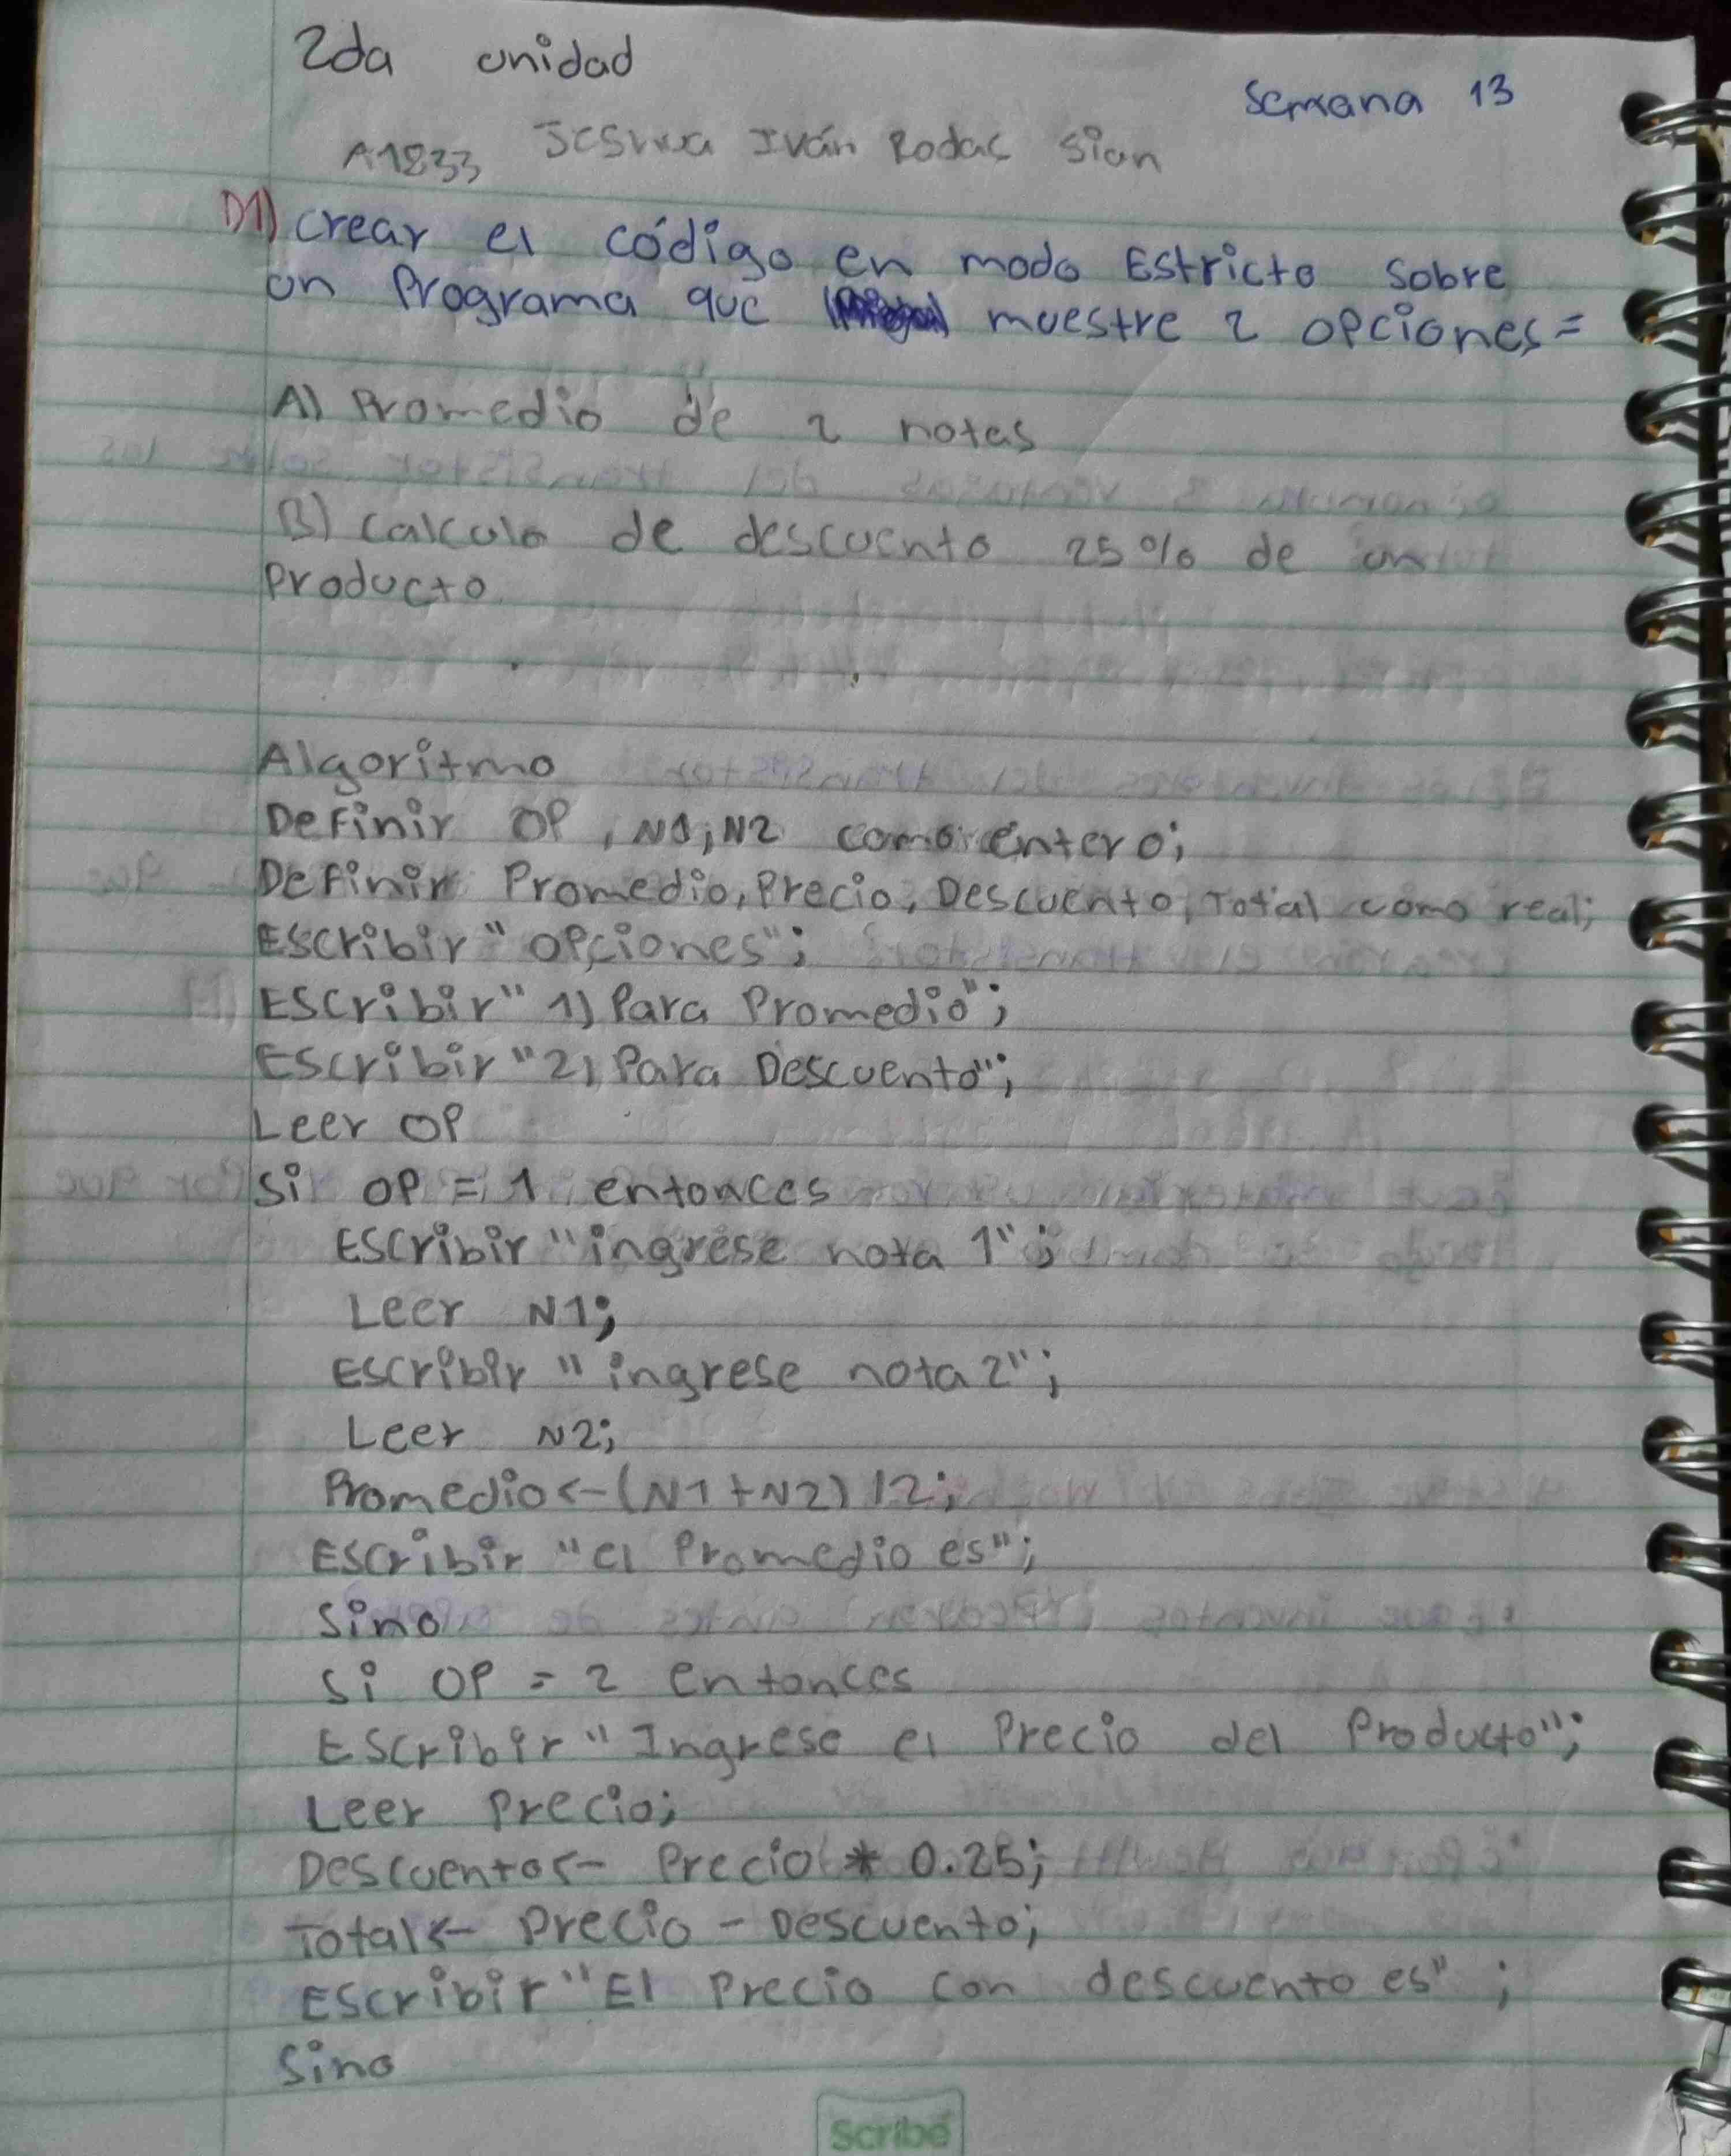 2da unidad
Semana 13
A1833 Jeshua Iván Rodas Sian
D1) crear el código en modo Estricto sobre
un Programa que muestre 2 opciones=
A) Promedio de 2 notas
B) calculo de descuento 25% de un
Producto
Algoritmo
Definir OP, N1, N2 como entero;
Definir Promedio, Precio, Descuento, Total como real;
Escribir "opciones";
Escribir "1) Para Promedio";
Escribir "2) Para Descuento";
Leer OP
Si OP = 1 entonces
Escribir "ingrese nota 1";
Leer N1;
Escribir "ingrese nota 2";
Leer N2;
Promedio <- (N1+N2) /2;
Escribir "el Promedio es";
Sino
Si OP = 2 entonces
Escribir "Ingrese el Precio del Producto";
Leer Precio;
Descuento <- Precio * 0.25;
Total <- Precio - Descuento;
Escribir "El Precio con descuento es" ;
Sino
Scribe